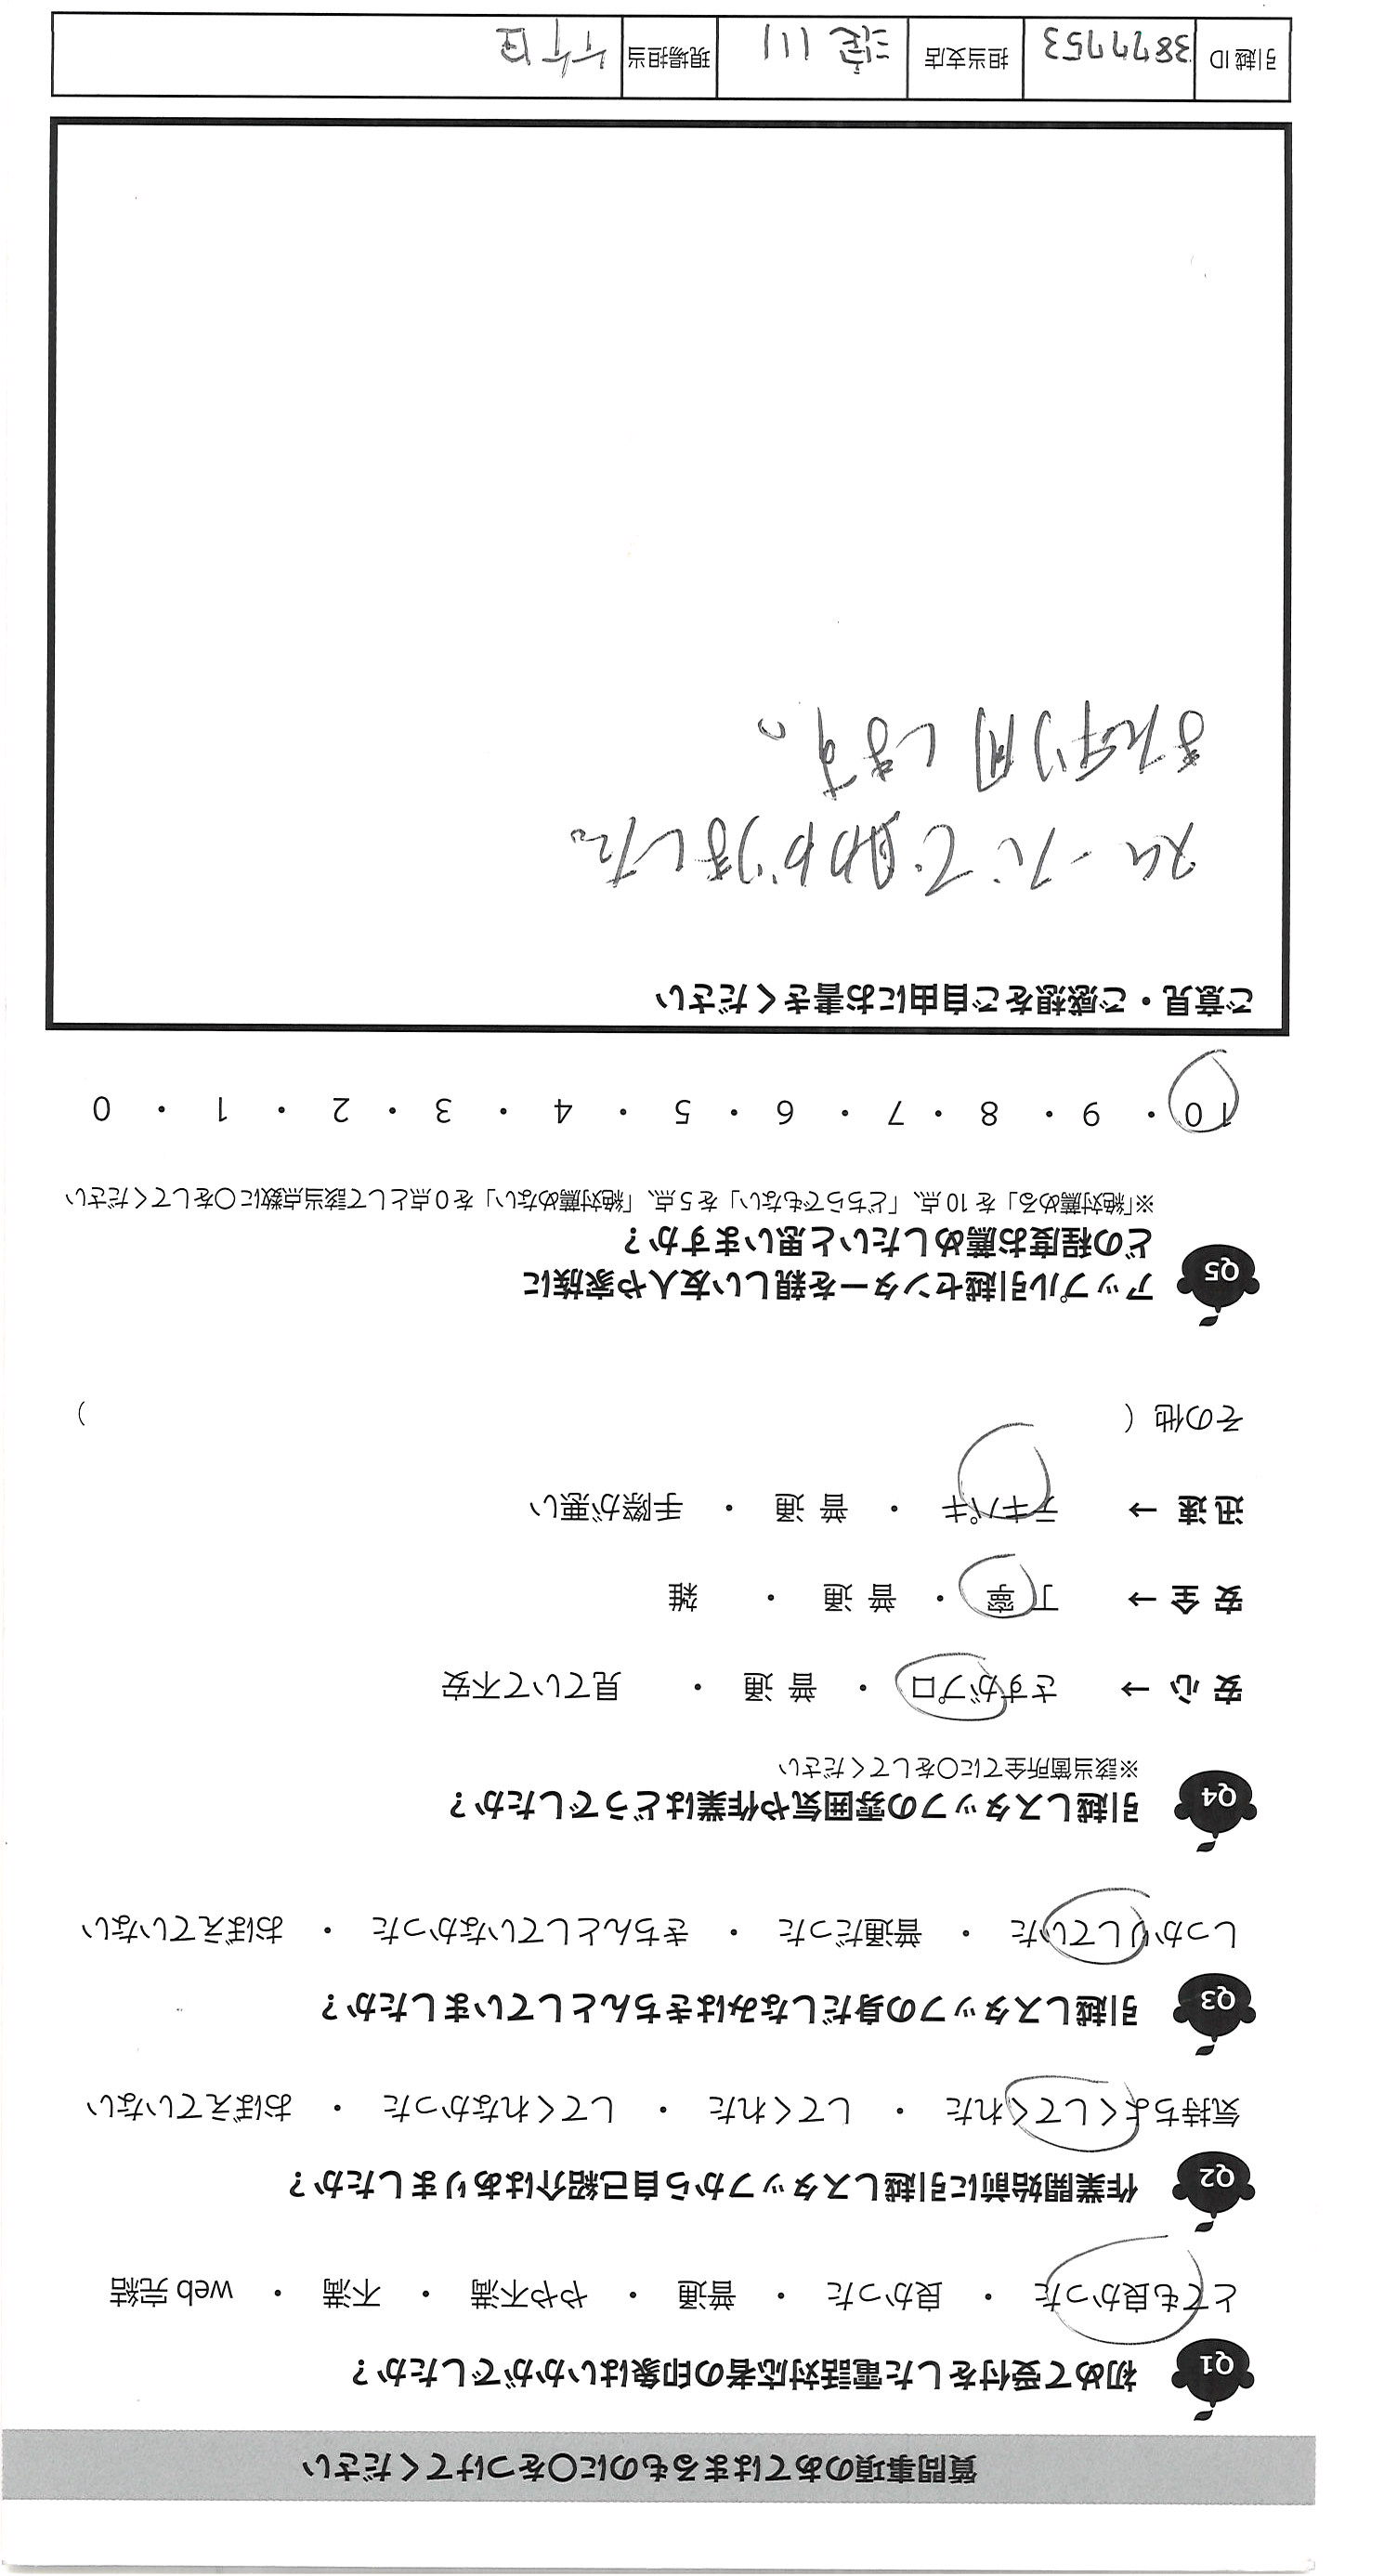 質問事項のあてはまるものに〇をつけてください
Q1 初めて受付をした電話対応者の印象はいかがでしたか？
とても良かった ・ 良かった ・ 普通 ・ やや不満 ・ 不満 ・ web 完結
Q2 作業開始前に引越しスタッフから自己紹介はありましたか？
気持ちよくしてくれた ・ してくれた ・ してくれなかった ・ おぼえていない
Q3 引越しスタッフの身だしなみはきちんとしていましたか？
しっかりしていた ・ 普通だった ・ きちんとしていなかった ・ おぼえていない
Q4 引越しスタッフの雰囲気や作業はどうでしたか？
※該当箇所全てに〇をしてください
安 心 → さすがプロ ・ 普 通 ・ 見ていて不安
安 全 → 丁 寧 ・ 普 通 ・ 雑
迅 速 → テキパキ ・ 普 通 ・ 手際が悪い
その他 ( )
Q5 アップル引越センターを親しい友人や家族に
どの程度お薦めしたいと思いますか？
※「絶対薦める」を 10 点、「どちらでもない」を 5 点、「絶対薦めない」を 0 点として該当点数に〇をしてください
10 ・ 9 ・ 8 ・ 7 ・ 6 ・ 5 ・ 4 ・ 3 ・ 2 ・ 1 ・ 0
ご意見・ご感想をご自由にお書きください
スムーズで助かりました。
また利用します。
引越 ID 3877753 担当支店 淀川 現場担当 竹田